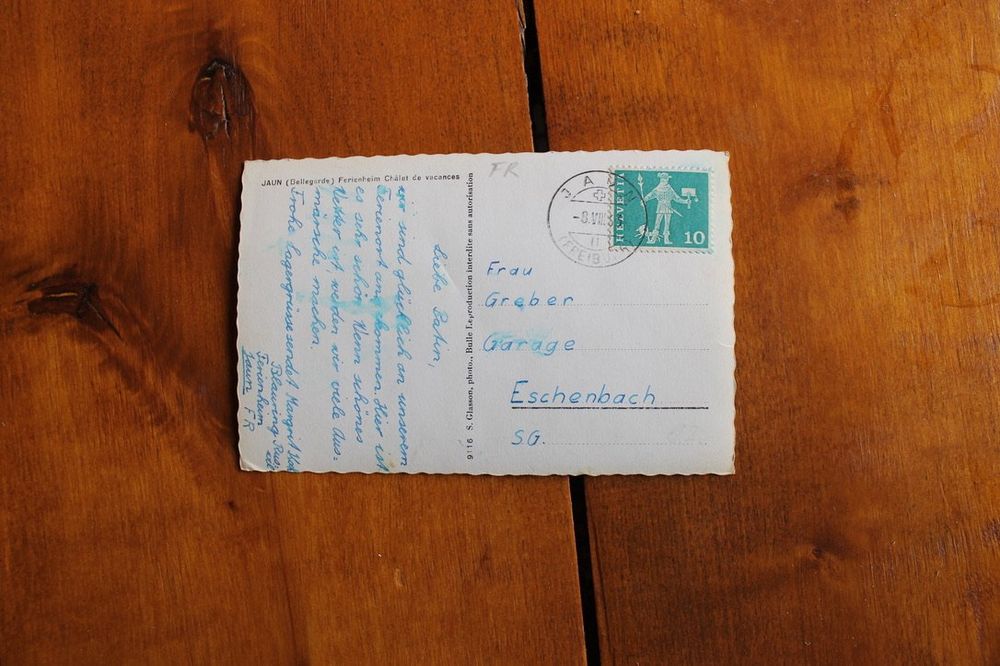 JAUN (Bellegarde) Ferienheim Châlet de vacances
Liebe Patin,
wir sind glücklich an unserem
Ferienort angekommen. Hier ist
es sehr schön. Wenn schönes
Wetter ist, werden wir viele Aus-
märsche machen.
Frohe Lagergrüsse sendet Margrit
Blauring
Ferienheim
Jaun FR
9116 S. Glasson, photo., Bulle Reproduction interdite sans autorisation
FR
JAUN
-8.VIII
(FREIBURG)
HELVETIA
10
Frau
Greber
Garage
Eschenbach
SG.